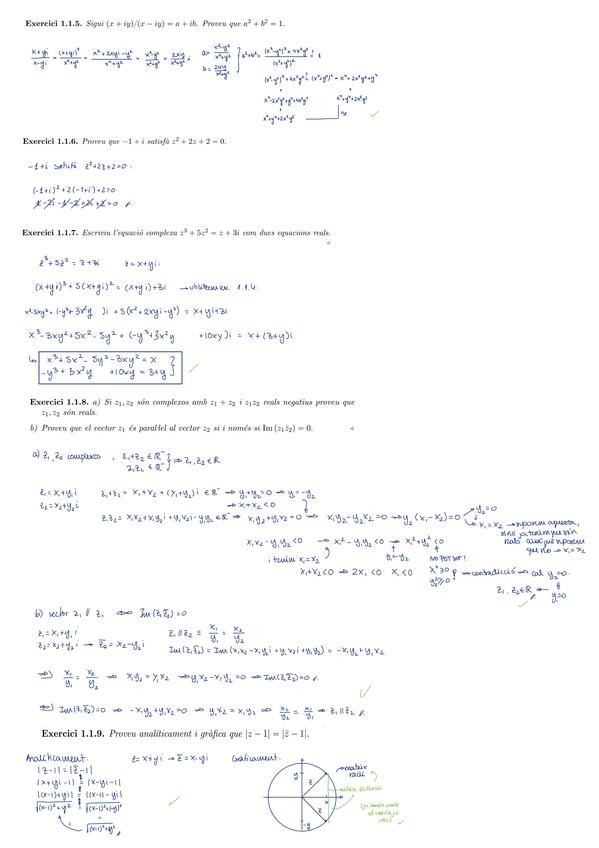 Exercici 1.1.5. Sigui (x + iy)/(x − iy) = a + ib. Proveu que a² + b² = 1.
x+yi/x-yi = (x+yi)²/x²+y² = x²+2xyi-y²/x²+y² = x²-y²/x²+y² + 2xy/x²+y² i
a = x²-y²/x²+y²
b = 2xy/x²+y²
a²+b² = (x²-y²)²+4x²y²/(x²+y²)² = 1
(x²-y²)²+4x²y² = (x²+y²)² = x⁴+2x²y²+y⁴
x⁴-2x²y²+y⁴+4x²y²
x⁴+y⁴+2x²y²
x⁴+y⁴+2x²y²
Exercici 1.1.6. Proveu que −1 + i satisfà z² + 2z + 2 = 0.
-1+i satisfà z²+2z+2=0:
(-1+i)²+2(-1+i)+2=0
1-2i-1-2+2i+2=0
Exercici 1.1.7. Escriviu l'equació complexa z³ + 5z² = z + 3i com dues equacions reals.
z³+5z² = z+3i z=x+yi:
(x+yi)³+5(x+yi)² = (x+yi)+3i → utilitzem ex 1.1.4:
x³-3xy²+(-y³+3x²y )i +5(x²+2xyi-y²) = x+yi+3i
x³-3xy²+5x²-5y²+(-y³+3x²y +10xy)i = x+(3+y)i
x³+5x²-5y²-3xy² = x
-y³+3x²y +10xy = 3+y
Exercici 1.1.8. a) Si z₁, z₂ són complexos amb z₁ + z₂ i z₁z₂ reals negatius proveu que
z₁, z₂ són reals.
b) Proveu que el vector z₁ és paral·lel al vector z₂ si i només si Im (z₁z̄₂) = 0.
a) z₁, z₂ complexos , z₁+z₂ ∈ ℝ⁻
z₁z₂ ∈ ℝ⁻ } ⇒ z₁, z₂ ∈ ℝ
z₁=x₁+y₁i z₁+z₂ = x₁+x₂+(y₁+y₂)i ∈ ℝ⁻ ⇒ y₁+y₂=0 ⇒ y₁=-y₂
z₂=x₂+y₂i ⇒ x₁+x₂<0
z₁z₂ = x₁x₂+x₁y₂i+y₁x₂i-y₁y₂ ∈ ℝ⁻ ⇒ x₁y₂+y₁x₂=0 ⇒ x₁y₂-y₂x₂=0 ⇒ y₂(x₁-x₂)=0
y₂=0
x₁=x₂
x₁x₂-y₁y₂<0 ⇒ x₁²-y₁y₂<0 ⇒ x₁²+y₂²<0
i tenim x₁=x₂ y₁=-y₂ NO POT SER!
x₁+x₂<0 ⇒ 2x₁<0 x₁<0 x₁²≥0
y₂²≥0 ⇒ contradicció ⇒ cal y₂=0
z₁, z₂ ∈ ℝ ⇐ y₁=0
b) vector z₁ // z₂ ⟺ Im(z₁z̄₂)=0
z₁=x₁+y₁i z₁//z₂ ≡ x₁/y₁ = x₂/y₂
z₂=x₂+y₂i → z̄₂=x₂-y₂i Im(z₁z̄₂) = Im(x₁x₂-x₁y₂i+y₁x₂i+y₁y₂) = -x₁y₂+y₁x₂
⇒) x₁/y₁ = x₂/y₂ ⇒ x₁y₂=y₁x₂ ⇒ y₁x₂-x₁y₂=0 ⇒ Im(z₁z̄₂)=0
⇐) Im(z₁z̄₂)=0 ⇒ -x₁y₂+y₁x₂=0 ⇒ y₁x₂=x₁y₂ ⇒ x₂/y₂ = x₁/y₁ ⇒ z₁//z₂
Exercici 1.1.9. Proveu analíticament i gràfica que |z − 1| = |z̄ − 1|.
Analíticament: z=x+yi → z̄=x-yi Gràficament:
|z-1|=|z̄-1|
|x+yi-1| = |x-yi-1|
|(x-1)+yi| = |(x-1)-yi|
√(x-1)²+y² = √(x-1)²+(-y)²
√(x-1)²+y²
y
z
x
z̄
-y
mateix
radi